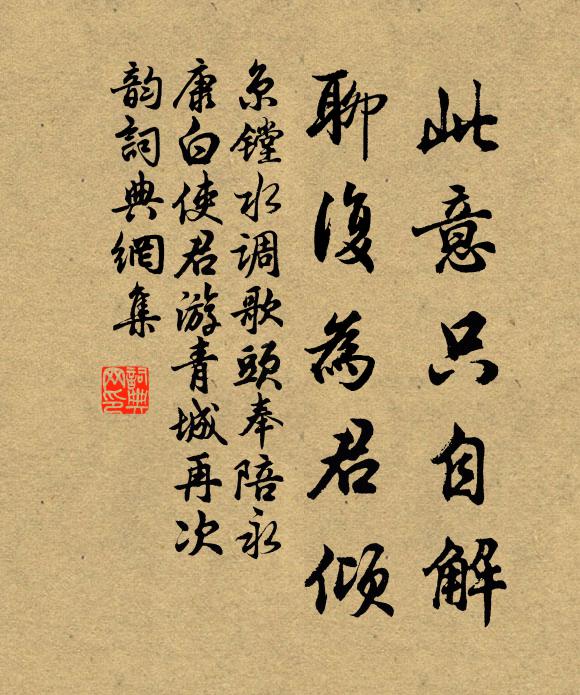 此意只自解
聊復為君傾
京镗水调歌頭奉陪永
康白使君游青城再次
韵詞典網集
詞典网印